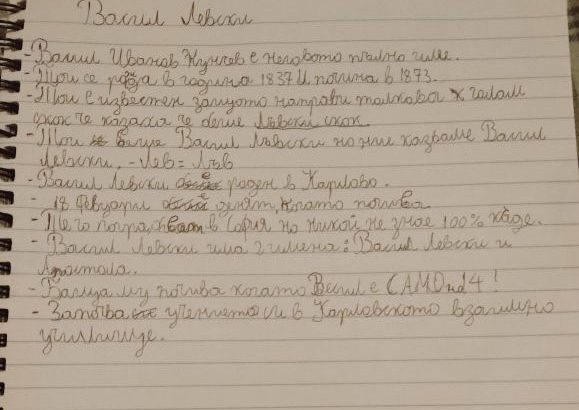 Васил Левски
- Васил Иванов Кунчев е неговото пълно име.
- Той се ражда в година 1837 и почина в 1873.
- Той е известен защото направи толкова голам
скок че казаха че беше Лъвски скок.
- Той беше Васил Лъвски но ние казваме Васил
Левски. - Лев = Лъв
- Васил Левски е роден в Карлово.
- 18 Февуари е денят, когато почива.
- Него погребват в София но никой не знае 100% къде.
- Васил Левски има 2 имена: Васил Левски и
Апостола.
- Баща му почива когато Васил е САМО на 14!
- Започва учението си в Карловското взаимно
училище.